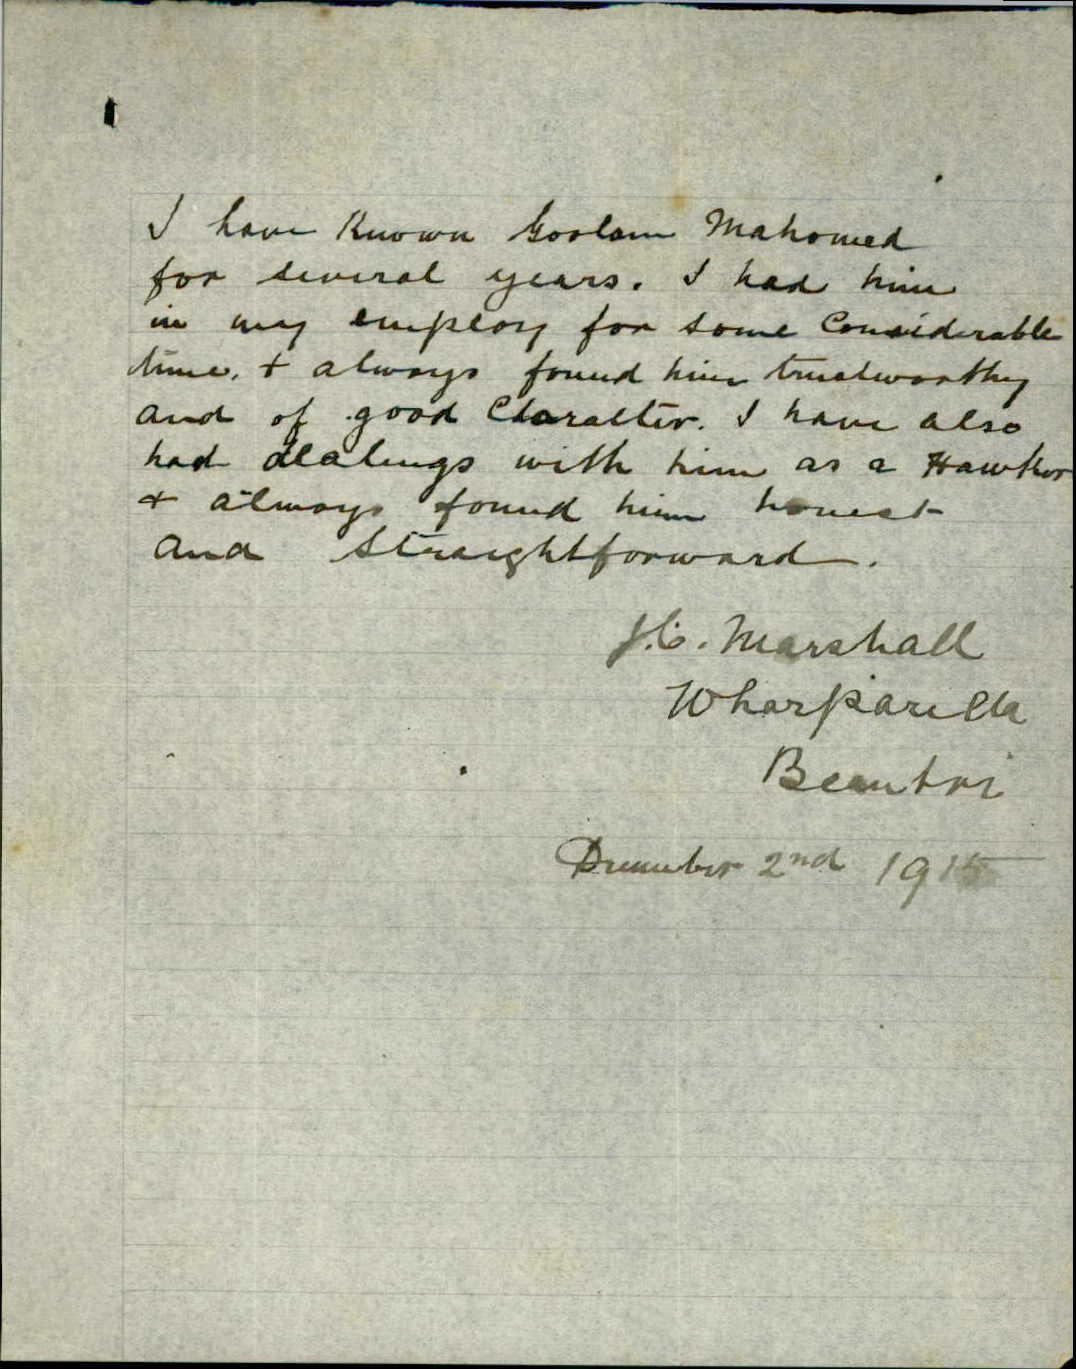 I have Known Goolam Mahomed
for several years. I had him
in my employ for some Considerable
time. + always found him trustworthy
and of good Character. I have also
had dealings with him as a Hawker
+ always found him honest
and straightforward.
J.C. Marshall
Wharparilla
December 2nd 1915